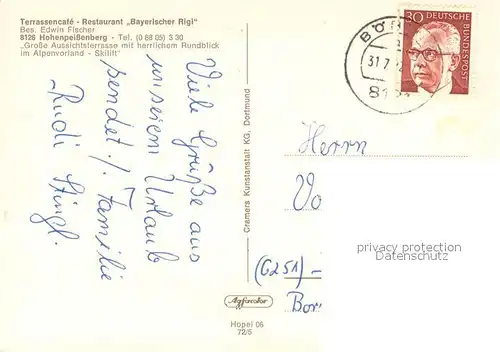 Terrassencafé - Restaurant „Bayerischer Rigi“
Bes. Edwin Fischer
8126 Hohenpeißenberg - Tel. (0 88 05) 3 30
„Große Aussichtsterrasse mit herrlichem Rundblick
im Alpenvorland - Skilift“
Viele Grüße aus
unserem Urlaub
sendet /. Familie
Rudi Stingl.
Cramers Kunstanstalt KG, Dortmund
30 DEUTSCHE BUNDESPOST
31.7.
Herrn
Vo
(6251)
Bor
privacy protection
Datenschutz
Agfacolor
Hopei 06
72/5